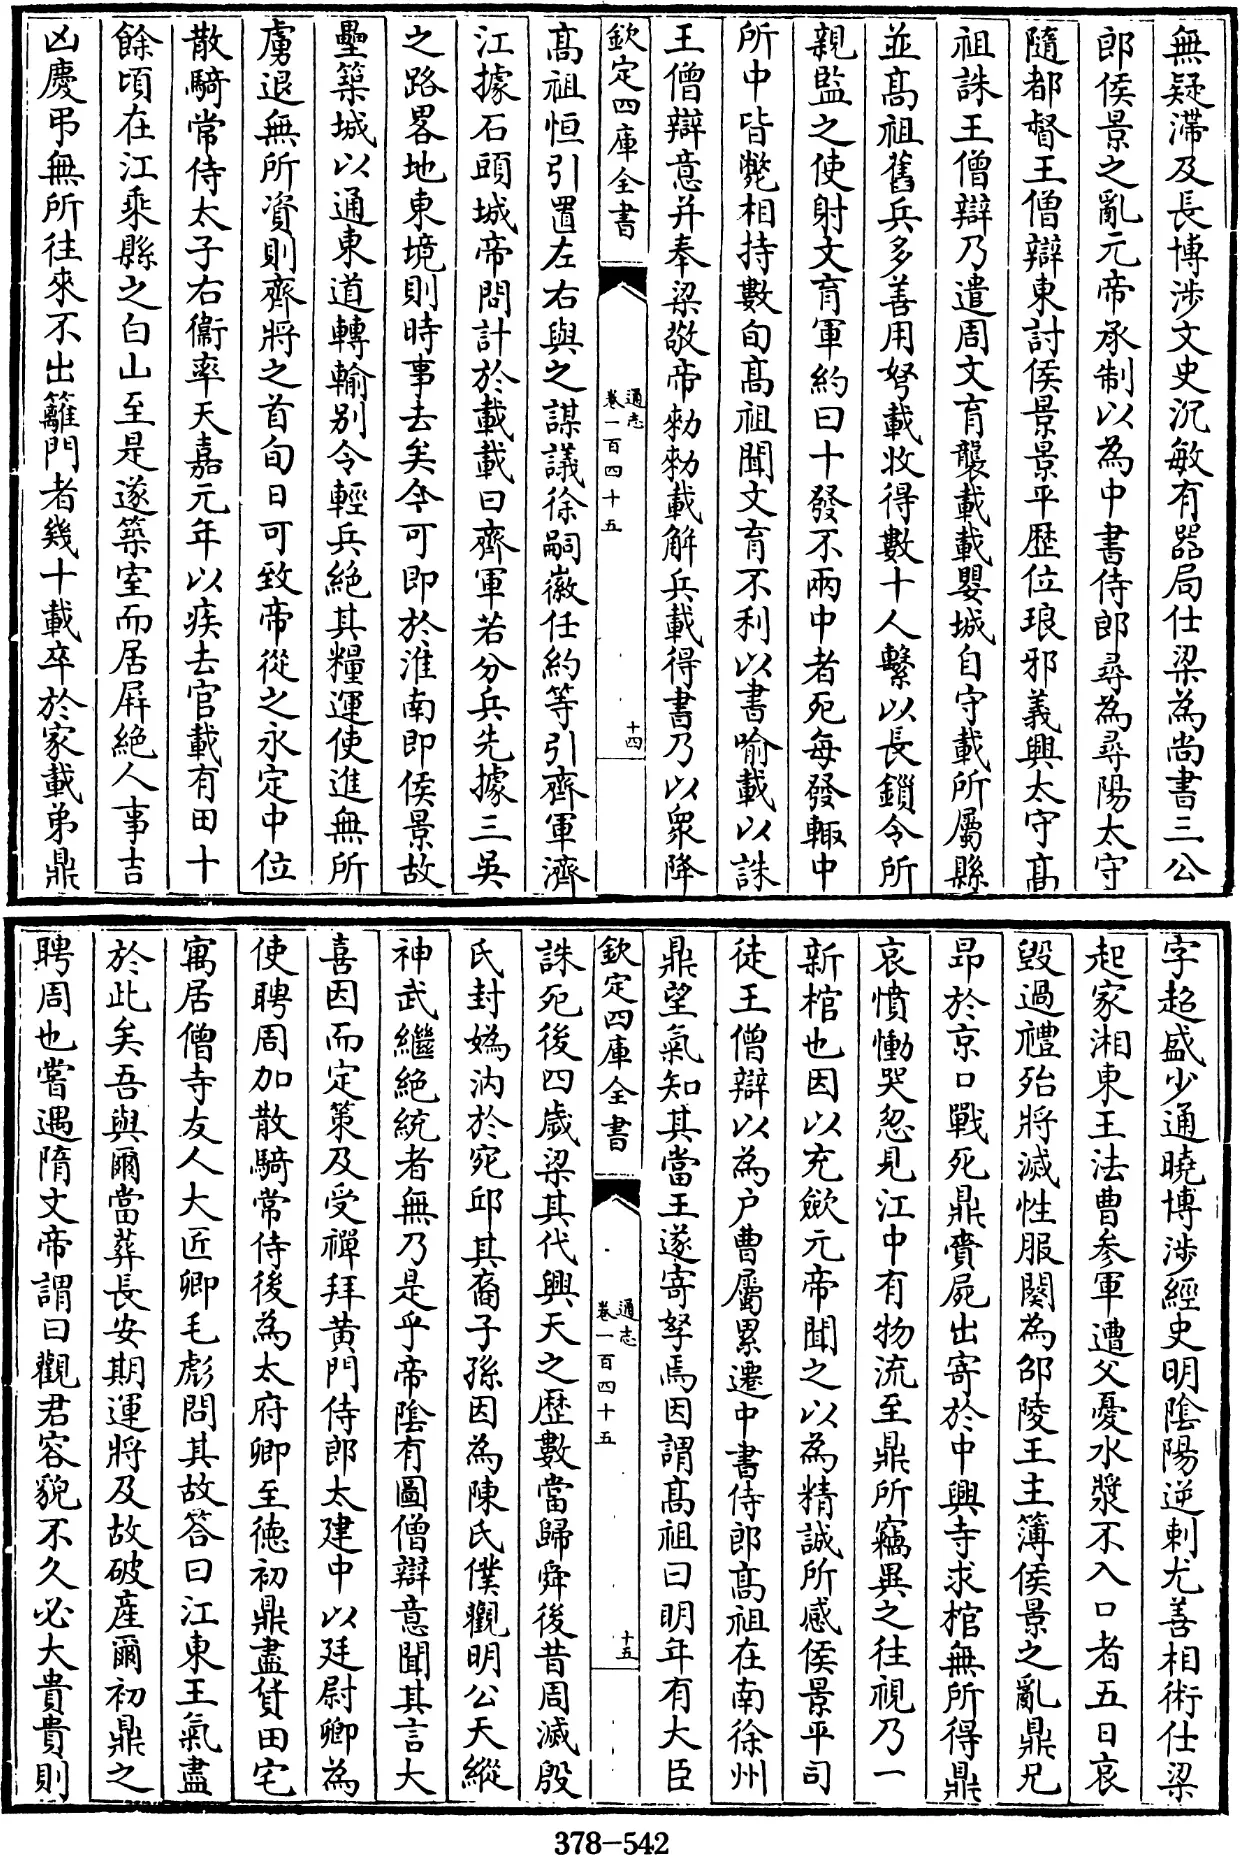 無疑滯及長博涉文史沉敏有器局仕梁為尚書三公
郎侯景之亂元帝承制以為中書侍郎尋為尋陽太守
隨都督王僧辯東討侯景景平歷位琅邪義興太守高
祖誅王僧辯乃遣周文育襲載載嬰城自守載所屬縣
並高祖舊兵多善用弩載收得數十人繫以長鎖令所
親監之使射文育軍約曰十發不兩中者死每發輙中
所中皆斃相持數旬高祖聞文育不利以書喻載以誅
王僧辯意并奉梁敬帝勑勑載解兵載得書乃以衆降
欽定四庫全書
通志
卷一百四十五
十四
高祖恒引置左右與之謀議徐嗣徽任約等引齊軍濟
江據石頭城帝問計於載載曰齊軍若分兵先據三吳
之路畧地東境則時事去矣今可即於淮南即侯景故
壘築城以通東道轉輸别令輕兵絶其糧運使進無所
虜退無所資則齊將之首旬日可致帝從之永定中位
散騎常侍太子右衞率天嘉元年以疾去官載有田十
餘頃在江乘縣之白山至是遂築室而居屏絶人事吉
凶慶弔無所往來不出籬門者幾十載卒於家載弟鼎
字超盛少通曉博涉經史明陰陽逆刺尤善相術仕梁
起家湘東王法曹參軍遭父憂水漿不入口者五日哀
毀過禮殆將滅性服闋為邵陵王主簿侯景之亂鼎兄
昻於京口戰死鼎賫屍出寄於中興寺求棺無所得鼎
哀憤慟哭忽見江中有物流至鼎所竊異之往視乃一
新棺也因以充歛元帝聞之以為精誠所感侯景平司
徒王僧辯以為户曹屬累遷中書侍郎高祖在南徐州
鼎望氣知其當王遂寄孥焉因謂高祖曰明年有大臣
欽定四庫全書
通志
卷一百四十五
十五
誅死後四歲梁其代興天之歷數當歸舜後昔周滅殷
氏封媯汭於宛邱其裔子孫因為陳氏僕觀明公天縱
神武繼絶統者無乃是乎帝陰有圖僧辯意聞其言大
喜因而定策及受禪拜黄門侍郎太建中以廷尉卿為
使聘周加散騎常侍後為太府卿至德初鼎盡貨田宅
寓居僧寺友人大匠卿毛彪問其故答曰江東王氣盡
於此矣吾與爾當葬長安期運將及故破産爾初鼎之
聘周也嘗遇隋文帝謂曰觀君容貌不久必大貴貴則
378-542